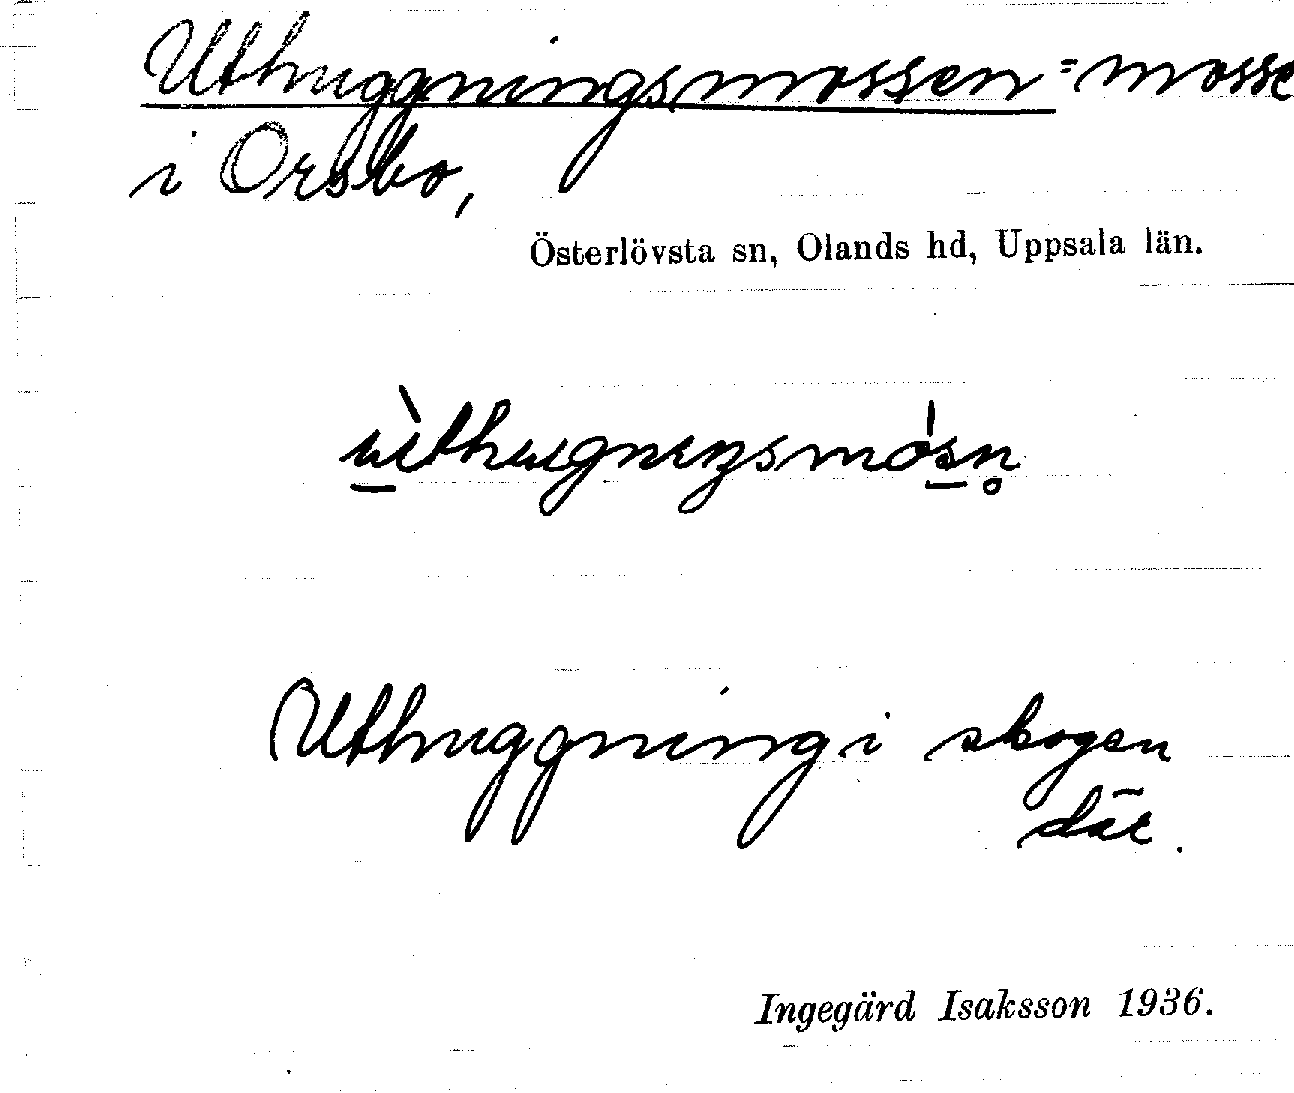 Uthuggningsmossen = mosse
i Orsbo,
Österlövsta sn, Olands hd, Uppsala län.
Uthuggning i skogen
där.
Ingegärd Isaksson 1936.